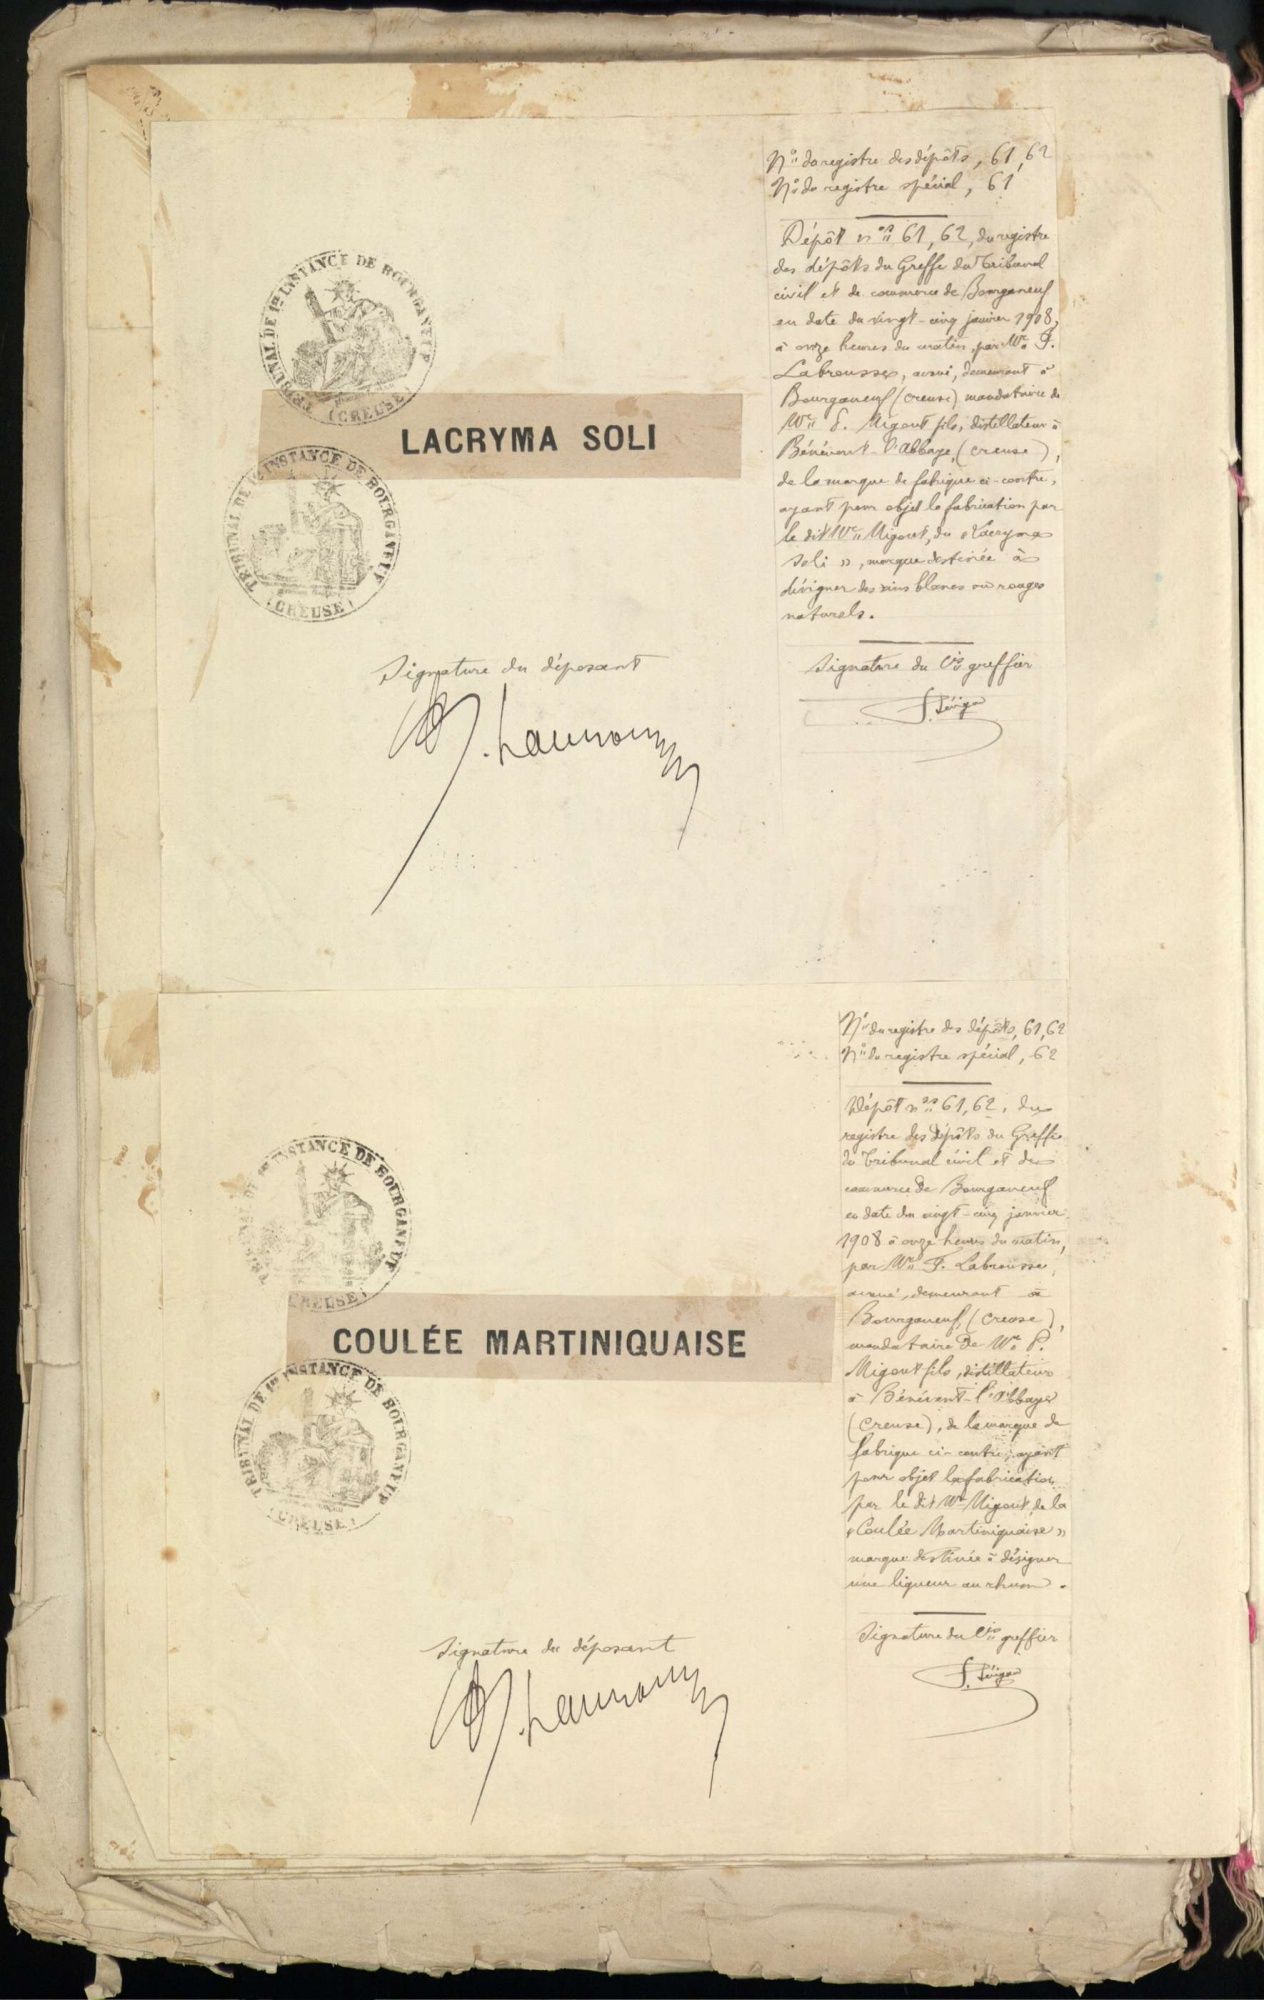 N° du registre des dépôts, 61, 62
N° du registre spécial, 61
Dépôt nos 61, 62, du registre
des dépôts du Greffe du Tribunal
civil et de commerce de Bourganeuf
en date du vingt-cinq janvier 1908,
à onze heures du matin, par Mr F.
Labrousse, avoué, demeurant à
Bourganeuf (Creuse) mandataire de
Mr P. Migout fils, distillateur à
Bénévent-l'Abbaye, (Creuse),
de la marque de fabrique ci-contre,
ayant pour objet la fabrication par
le dit Mr Migout, du « Lacryma
Soli », marque destinée à
désigner des vins blancs ou rouges
naturels.
TRIBUNAL DE 1re INSTANCE DE BOURGANEUF
(CREUSE)
LACRYMA SOLI
TRIBUNAL DE 1re INSTANCE DE BOURGANEUF
(CREUSE)
Signature du déposant
Signature du Cis greffier
N° du registre des dépôts, 61, 62
N° du registre spécial, 62
Dépôt nos 61, 62, du
registre des Dépôts du Greffe
du Tribunal civil et de
commerce de Bourganeuf
en date du vingt-cinq janvier
1908 à onze heures du matin,
par Mr F. Labrousse,
avoué, demeurant à
Bourganeuf, (Creuse),
mandataire de Mr P.
Migout fils, distillateur
à Bénévent-l'Abbaye
(Creuse), de la marque de
fabrique ci-contre, ayant
pour objet la fabrication
par le dit Mr Migout, de la
« Coulée Martiniquaise »
marque destinée à désigner
une liqueur au rhum.
TRIBUNAL DE 1re INSTANCE DE BOURGANEUF
(CREUSE)
COULÉE MARTINIQUAISE
TRIBUNAL DE 1re INSTANCE DE BOURGANEUF
(CREUSE)
Signature du déposant
Signature du Cis greffier